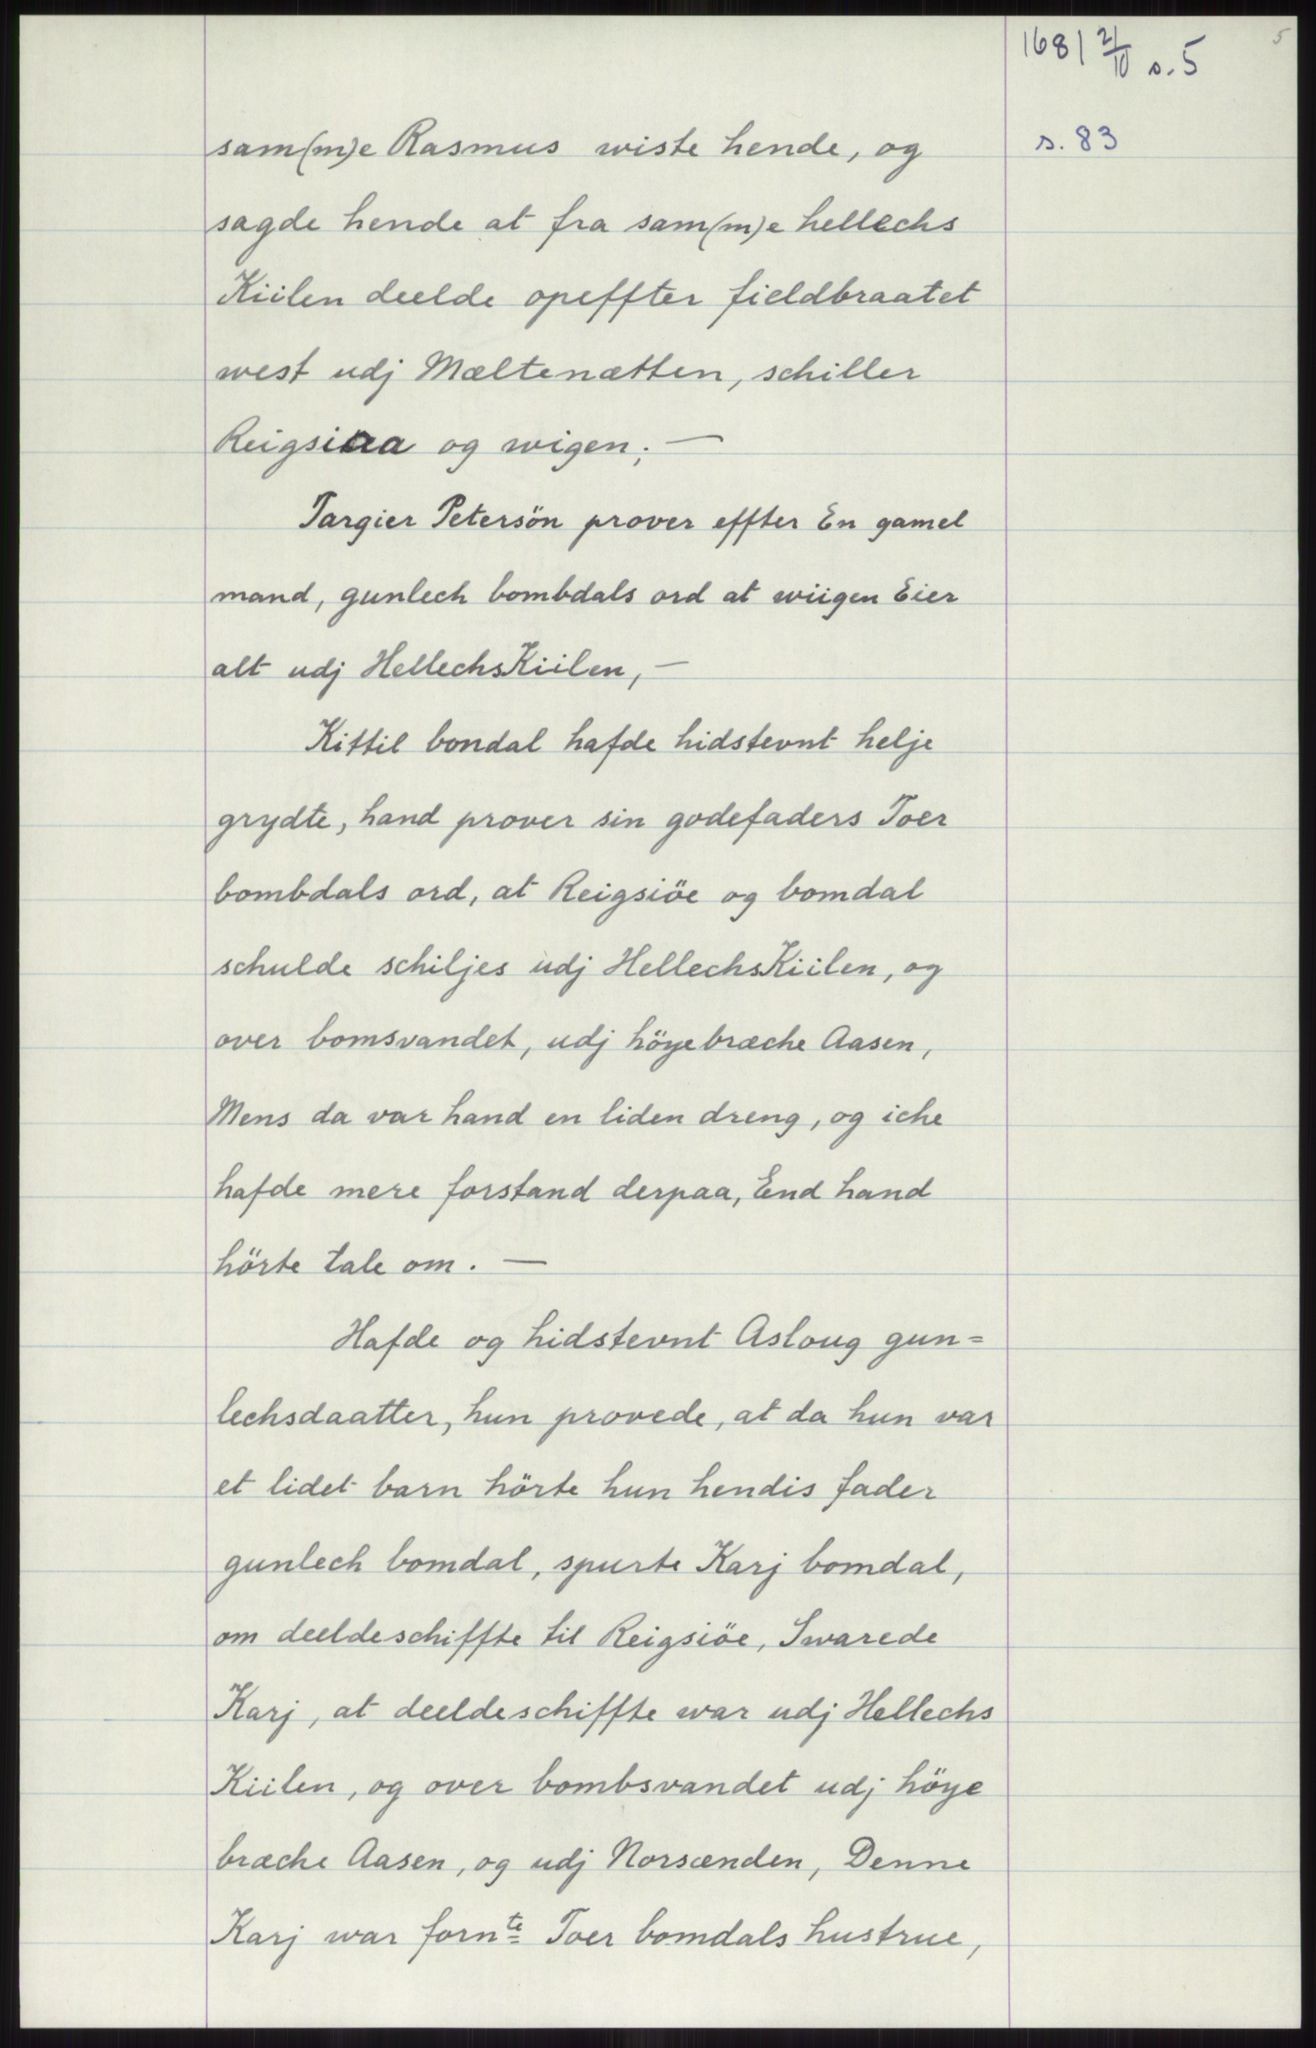 1681 2/10 s. 5
5
s. 83
sam(m)e Rasmus wiste hende, og
sagde hende at fra sam(m)e hellechs
Kiilen deelde opeffter fieldbraatet
west udj Mæltenætten, schiller
Reigsiaa og wigen; —
Targier Petersön prover effter En gamel
mand, gunlech bombdals ord at wiigen Eier
alt udj HellechsKiilen, —
Kittil bondal hafde hidstevnt helje
grydte, hand prover sin godefaders Toer
bombdals ord, at Reigsiöe og bomdal
schulde schiljes udj HellechsKiilen, og
over bomsvandet, udj höyebræche Aasen,
Mens da var hand en liden dreng, og iche
hafde mere forstand derpaa, End hand
hörte tale om. —
Hafde og hidstevnt Asloug gun=
lechsdaatter, hun provede, at da hun var
et lidet barn hörte hun hendis fader
gunlech bomdal, spurte Karj bomdal,
om deeldeschiffte til Reigsiöe, Swarede
Karj, at deeldeschiffte war udj Hellechs
Kiilen, og over bombsvandet udj höye
bræche Aasen, og udj Norsænden, Denne
Karj war fornte Toer bomdals hustrue,